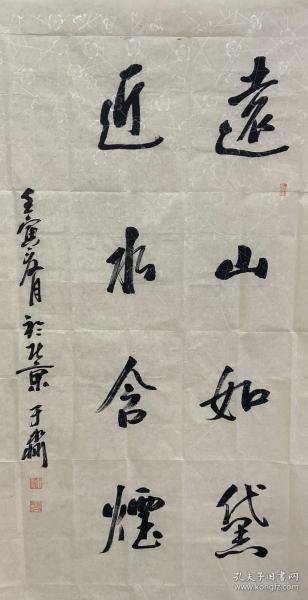 遠山如黛
近水含煙
壬寅六月於北京
孔夫子旧书网